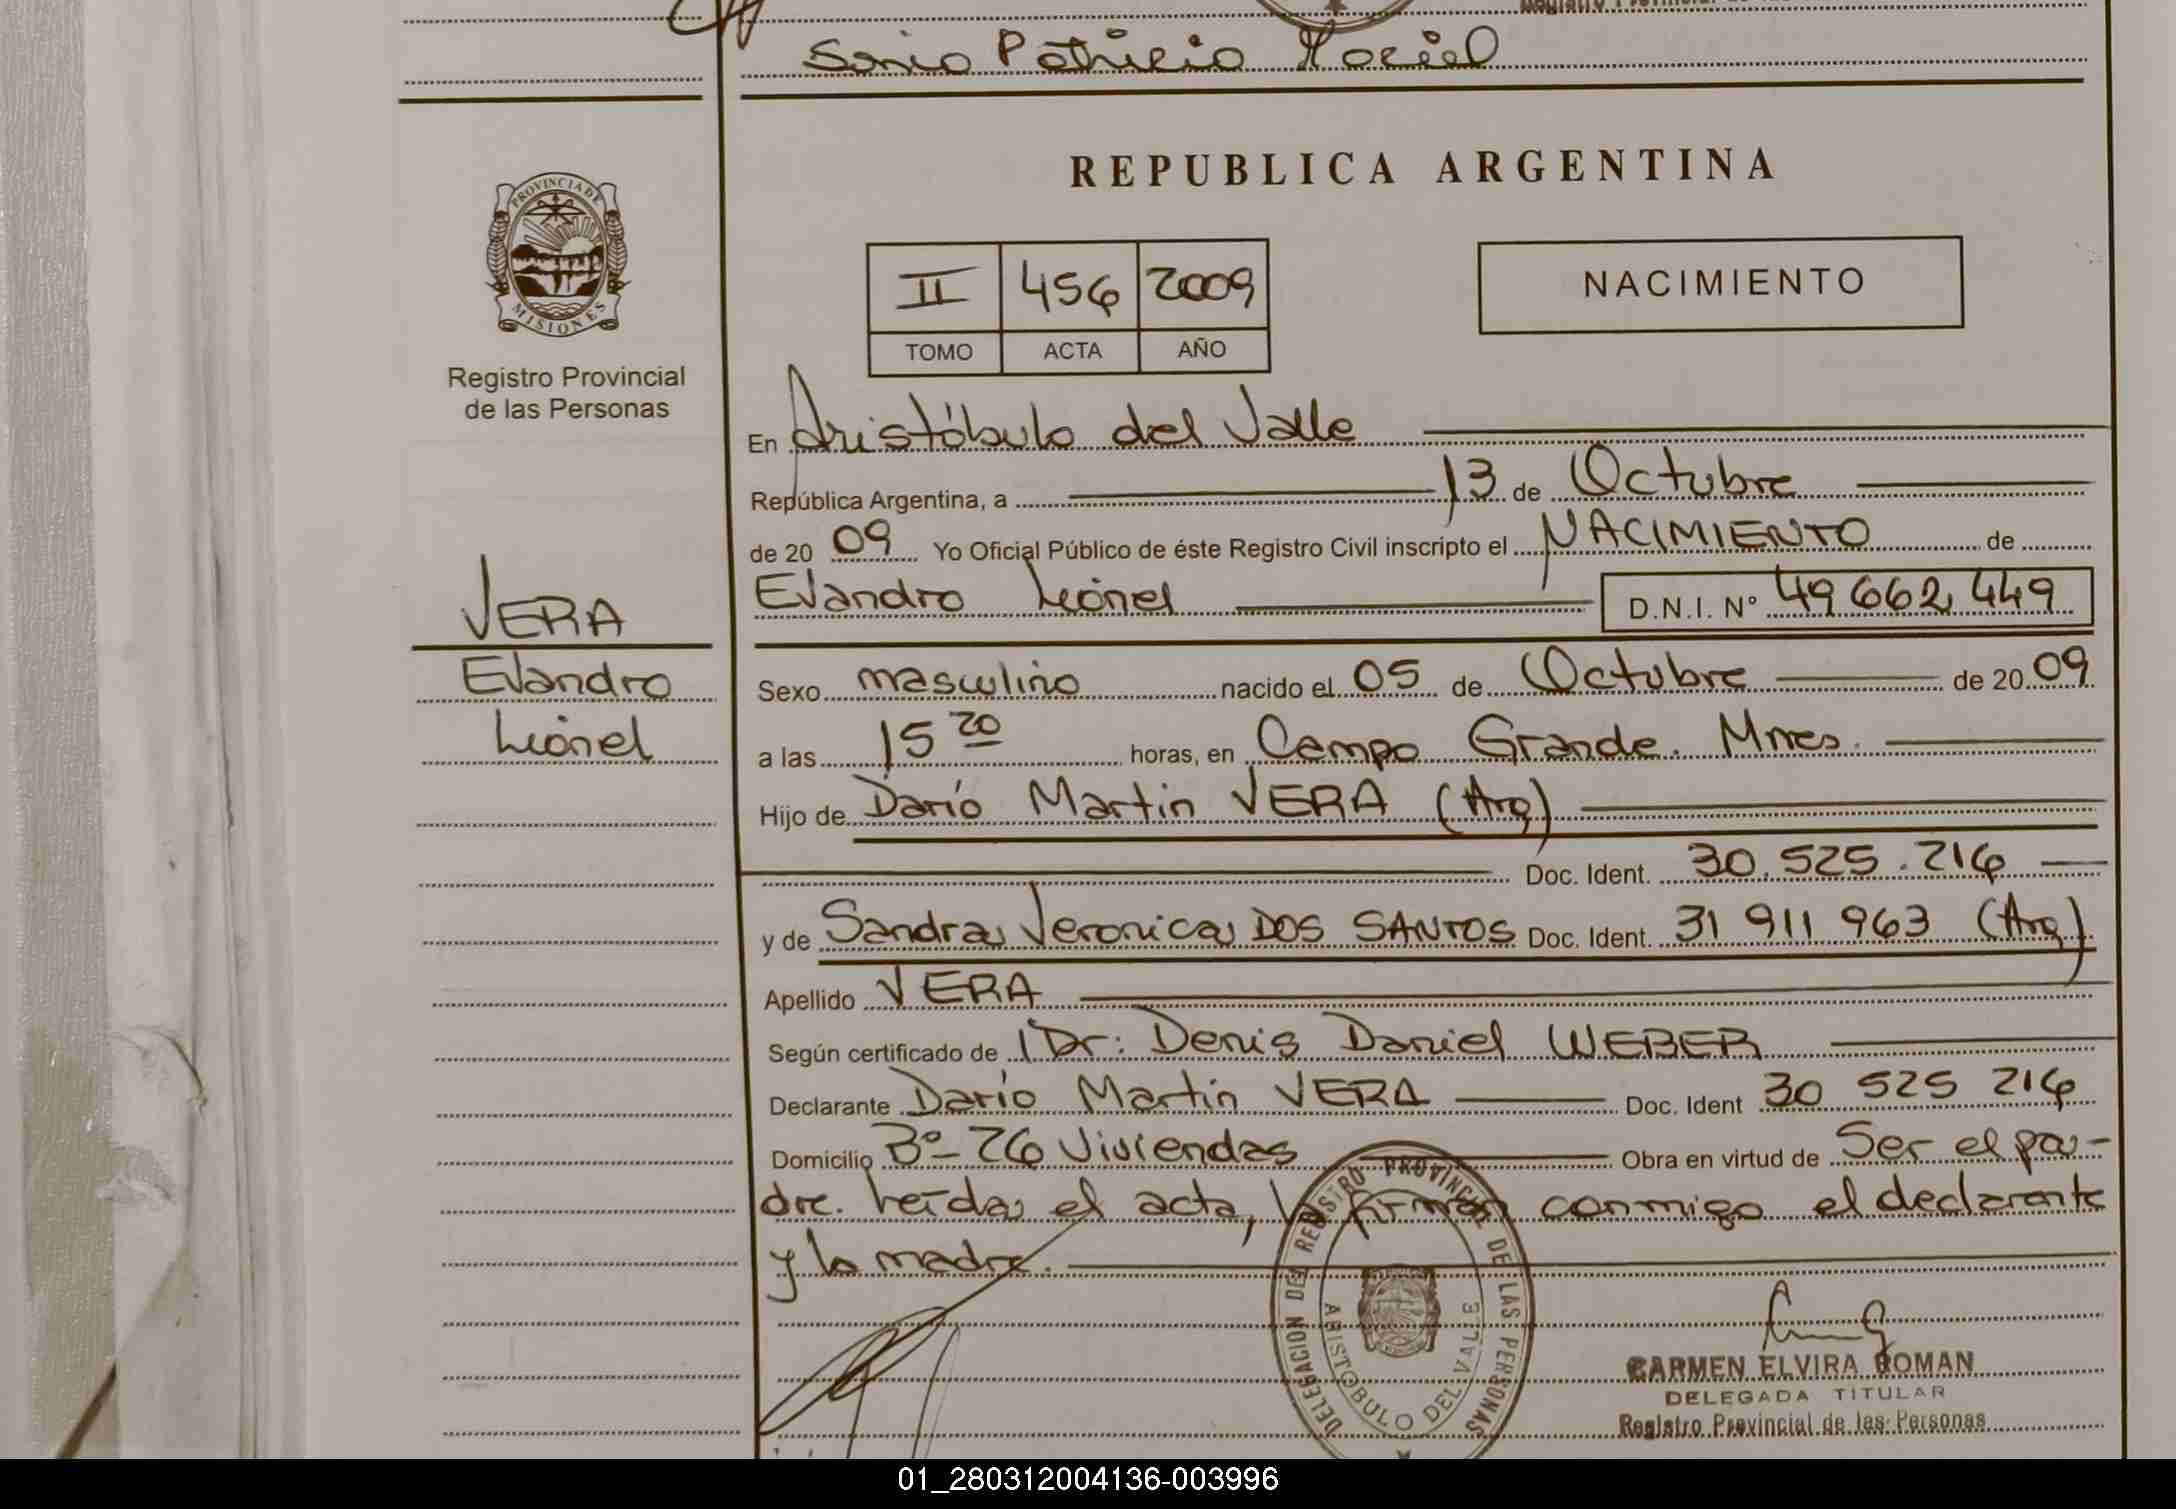 Sonia Patricia Maciel
PROVINCIA DE
MISIONES
Registro Provincial
de las Personas
REPUBLICA ARGENTINA
II 456 2009
TOMO ACTA AÑO
NACIMIENTO
En Aristóbulo del Valle
República Argentina, a 13 de Octubre
de 20 09 Yo Oficial Público de éste Registro Civil inscripto el NACIMIENTO de
Evandro Leonel D.N.I. N° 49 662 449
VERA
Evandro
Leonel
Sexo masculino nacido el 05 de Octubre de 20 09
a las 15 20 horas, en Campo Grande. Mnes.
Hijo de Darío Martin VERA (Arg)
Doc. Ident. 30.525.216
y de Sandra Veronica DOS SANTOS Doc. Ident. 31 911 963 (Arg)
Apellido VERA
Según certificado de Dr: Denis Daniel WEBER
Declarante Darío Martin VERA Doc. Ident 30 525 216
Domicilio B°- 26 Viviendas Obra en virtud de Ser el pa-
dre. Leída el acta, la firman conmigo el declarante
y la madre.
DELEGACION DEL REGISTRO PROVINCIAL DE LAS PERSONAS
ARISTOBULO DEL VALLE
CARMEN ELVIRA ROMAN
DELEGADA TITULAR
Registro Provincial de las Personas
01_280312004136-003996